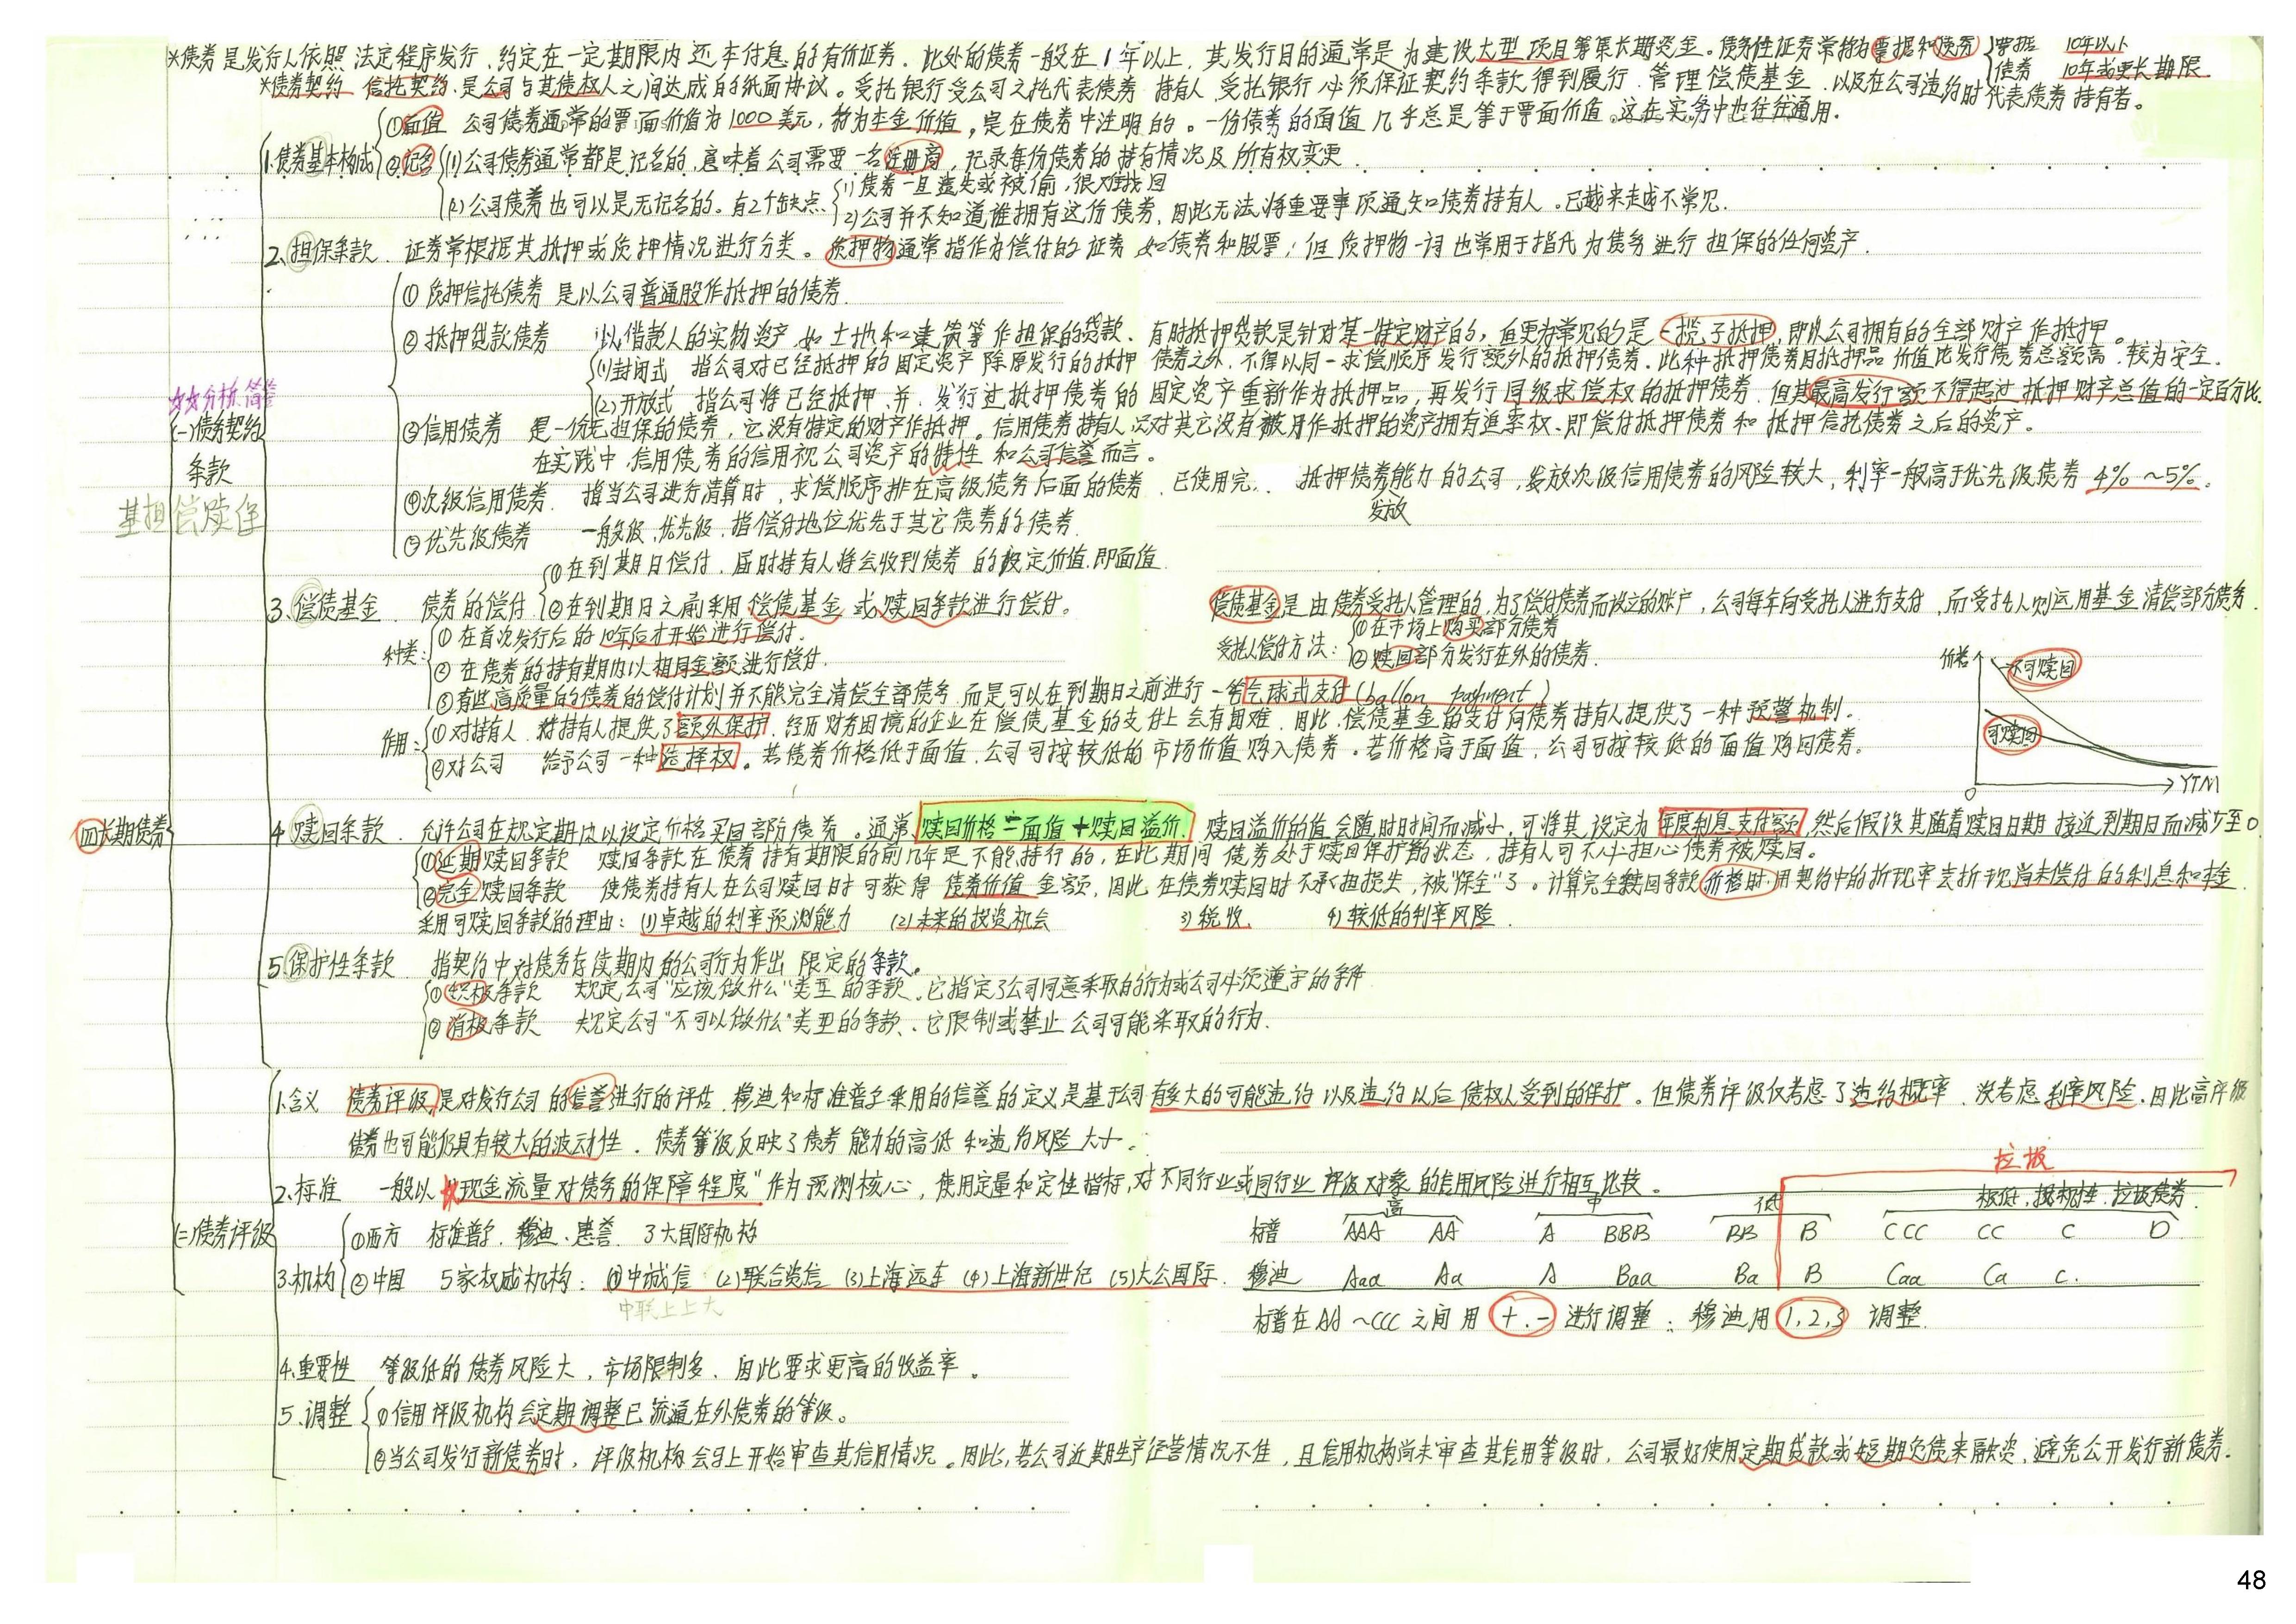 *债券是发行人依照法定程序发行、约定在一定期限内还本付息的有价证券。此处的债券一般在1年以上，其发行目的通常是为建设大型项目筹集长期资金。债务性证券常称为票据和债券 { 票据 10年以下
债券 10年或更长期限.
*债券契约 信托契约.是公司与其债权人之间达成的纸面协议。受托银行受公司之托代表债券持有人，受托银行必须保证契约条款得到履行、管理偿债基金、以及在公司违约时代表债券持有者。
①面值 公司债券通常的票面价值为1000美元，称为本金价值，是在债券中注明的。一份债券的面值几乎总是等于票面价值.这在实务中也往往通用.
1.债券基本构成 ②记名 (1)公司债券通常都是记名的，意味着公司需要一名注册商，记录每份债券的持有情况及所有权变更.
(2)公司债券也可以是无记名的。有2个缺点. 1)债券一旦遗失或被偷，很难找回
2)公司并不知道谁拥有这份债券，因此无法将重要事项通知债券持有人。已越来越不常见.
2.担保条款. 证券常根据其抵押或质押情况进行分类。质押物通常指作为偿付的证券 如债券和股票；但质押物一词也常用于指代为债务进行担保的任何资产.
①质押信托债券 是以公司普通股作抵押的债券.
②抵押贷款债券 以借款人的实物资产.如土地和建筑等作担保的贷款. 有时抵押贷款是针对某一特定财产的，但更为常见的是一揽子抵押,即以公司拥有的全部财产作抵押。
(1)封闭式 指公司对已经抵押的固定资产 除原发行的抵押债券之外，不得以同一求偿顺序发行额外的抵押债券.此种抵押债券因抵押品价值比发行债券总额高，较为安全.
(2)开放式 指公司将已经抵押、并发行过抵押债券的固定资产重新作为抵押品，再发行同级求偿权的抵押债券.但其最高发行额不得超过抵押财产总值的一定百分比.
☆☆分析.简答
(一)债券契约条款
基担偿赎保
③信用债券 是一份无担保的债券，它没有特定的财产作抵押。信用债券持有人只对其它没有被用作抵押的资产拥有追索权.即偿付抵押债券和抵押信托债券之后的资产。
在实践中.信用债券的信用视公司资产的特性和公司信誉而言。
④次级信用债券. 指当公司进行清算时，求偿顺序排在高级债务后面的债券. 已使用完 抵押债券能力的公司，发放次级信用债券的风险较大，利率一般高于优先级债券4%~5%。
发放
⑤优先级债券 一般级.优先级.指偿付地位优先于其它债券的债券.
①在到期日偿付.届时持有人将会收到债券的设定价值.即面值.
3.偿债基金 债券的偿付 ②在到期日之前采用偿债基金或赎回条款进行偿付。 偿债基金是由债券受托人管理的.为了偿付债券而设立的账户，公司每年向受托人进行支付，而受托人则运用基金清偿部分债务.
种类: ①在首次发行后的10年后才开始进行偿付. 受托人偿付方法: ①在市场上购买部分债券
②在债券的持有期内以相同金额进行偿付. ②赎回部分发行在外的债券.
③有些高质量的债券的偿付计划并不能完全清偿全部债务,而是可以在到期日之前进行一笔气球式支付(ballon payment)
作用: ①对持有人 对持有人提供了额外保护.经历财务困境的企业在偿债基金的支付上会有困难，因此，偿债基金的支付向债券持有人提供了一种预警机制.
②对公司 给予公司一种选择权。若债券价格低于面值.公司可按较低的市场价值购入债券。若价格高于面值，公司可按较低的面值购回债券。
价格
不可赎回
可赎回
0
YTM
四长期债券
4.赎回条款. 允许公司在规定期内以设定价格买回部份债券。通常,赎回价格=面值+赎回溢价. 赎回溢价的值会随时时间而减小.可将其设定为年度利息支付额,然后假设其随着赎回日期接近到期日而减少至0.
①延期赎回条款 赎回条款在债券持有期限的前几年是不能执行的，在此期间债券处于赎回保护的状态，持有人可不必担心债券被赎回。
②完全赎回条款 使债券持有人在公司赎回时可获得债券价值金额，因此在债券赎回时不承担损失，被“保全”了。计算完全赎回条款价格时.用契约中的折现率去折现尚未偿付的利息和本金.
采用可赎回条款的理由: (1)卓越的利率预测能力 (2)未来的投资机会 3)税收. 4)较低的利率风险.
5.保护性条款 指契约中对债务存续期内的公司行为作出限定的条款。
①积极条款 规定公司“应该做什么”类型的条款.它指定了公司同意采取的行为或公司必须遵守的条件
②消极条款 规定公司“不可以做什么”类型的条款.它限制或禁止公司可能采取的行为.
(二)债券评级
1.含义 债券评级是对发行公司的信誉进行的评估.穆迪和标准普尔采用的信誉的定义是基于公司有多大的可能违约以及违约以后债权人受到的保护。但债券评级仅考虑了违约概率.没考虑利率风险.因此高评级
债券也可能仍具有较大的波动性.债券等级反映了债券能力的高低和违约风险大小。
2.标准 一般以“现金流量对债务的保障程度”作为预测核心，使用定量和定性指标,对不同行业或同行业评级对象的信用风险进行相互比较。
3.机构 ①西方 标准普尔.穆迪.惠誉 3大国际机构
②中国 5家权威机构: (1)中诚信 (2)联合资信 (3)上海远东 (4)上海新世纪 (5)大公国际.
中联上上大
垃圾
高 中 低 极低,投机性.垃圾债券.
标普 AAA AA A BBB BB B CCC CC C D
穆迪 Aaa Aa A Baa Ba B Caa Ca C.
标普在AA~CCC之间用+.-进行调整；穆迪用1,2,3调整.
4.重要性 等级低的债券风险大，市场限制多、因此要求更高的收益率。
5.调整 ①信用评级机构会定期调整已流通在外债券的等级。
②当公司发行新债券时，评级机构会马上开始审查其信用情况。因此,若公司近期生产经营情况不佳，且信用机构尚未审查其信用等级时，公司最好使用定期贷款或短期负债来融资,避免公开发行新债券.
48